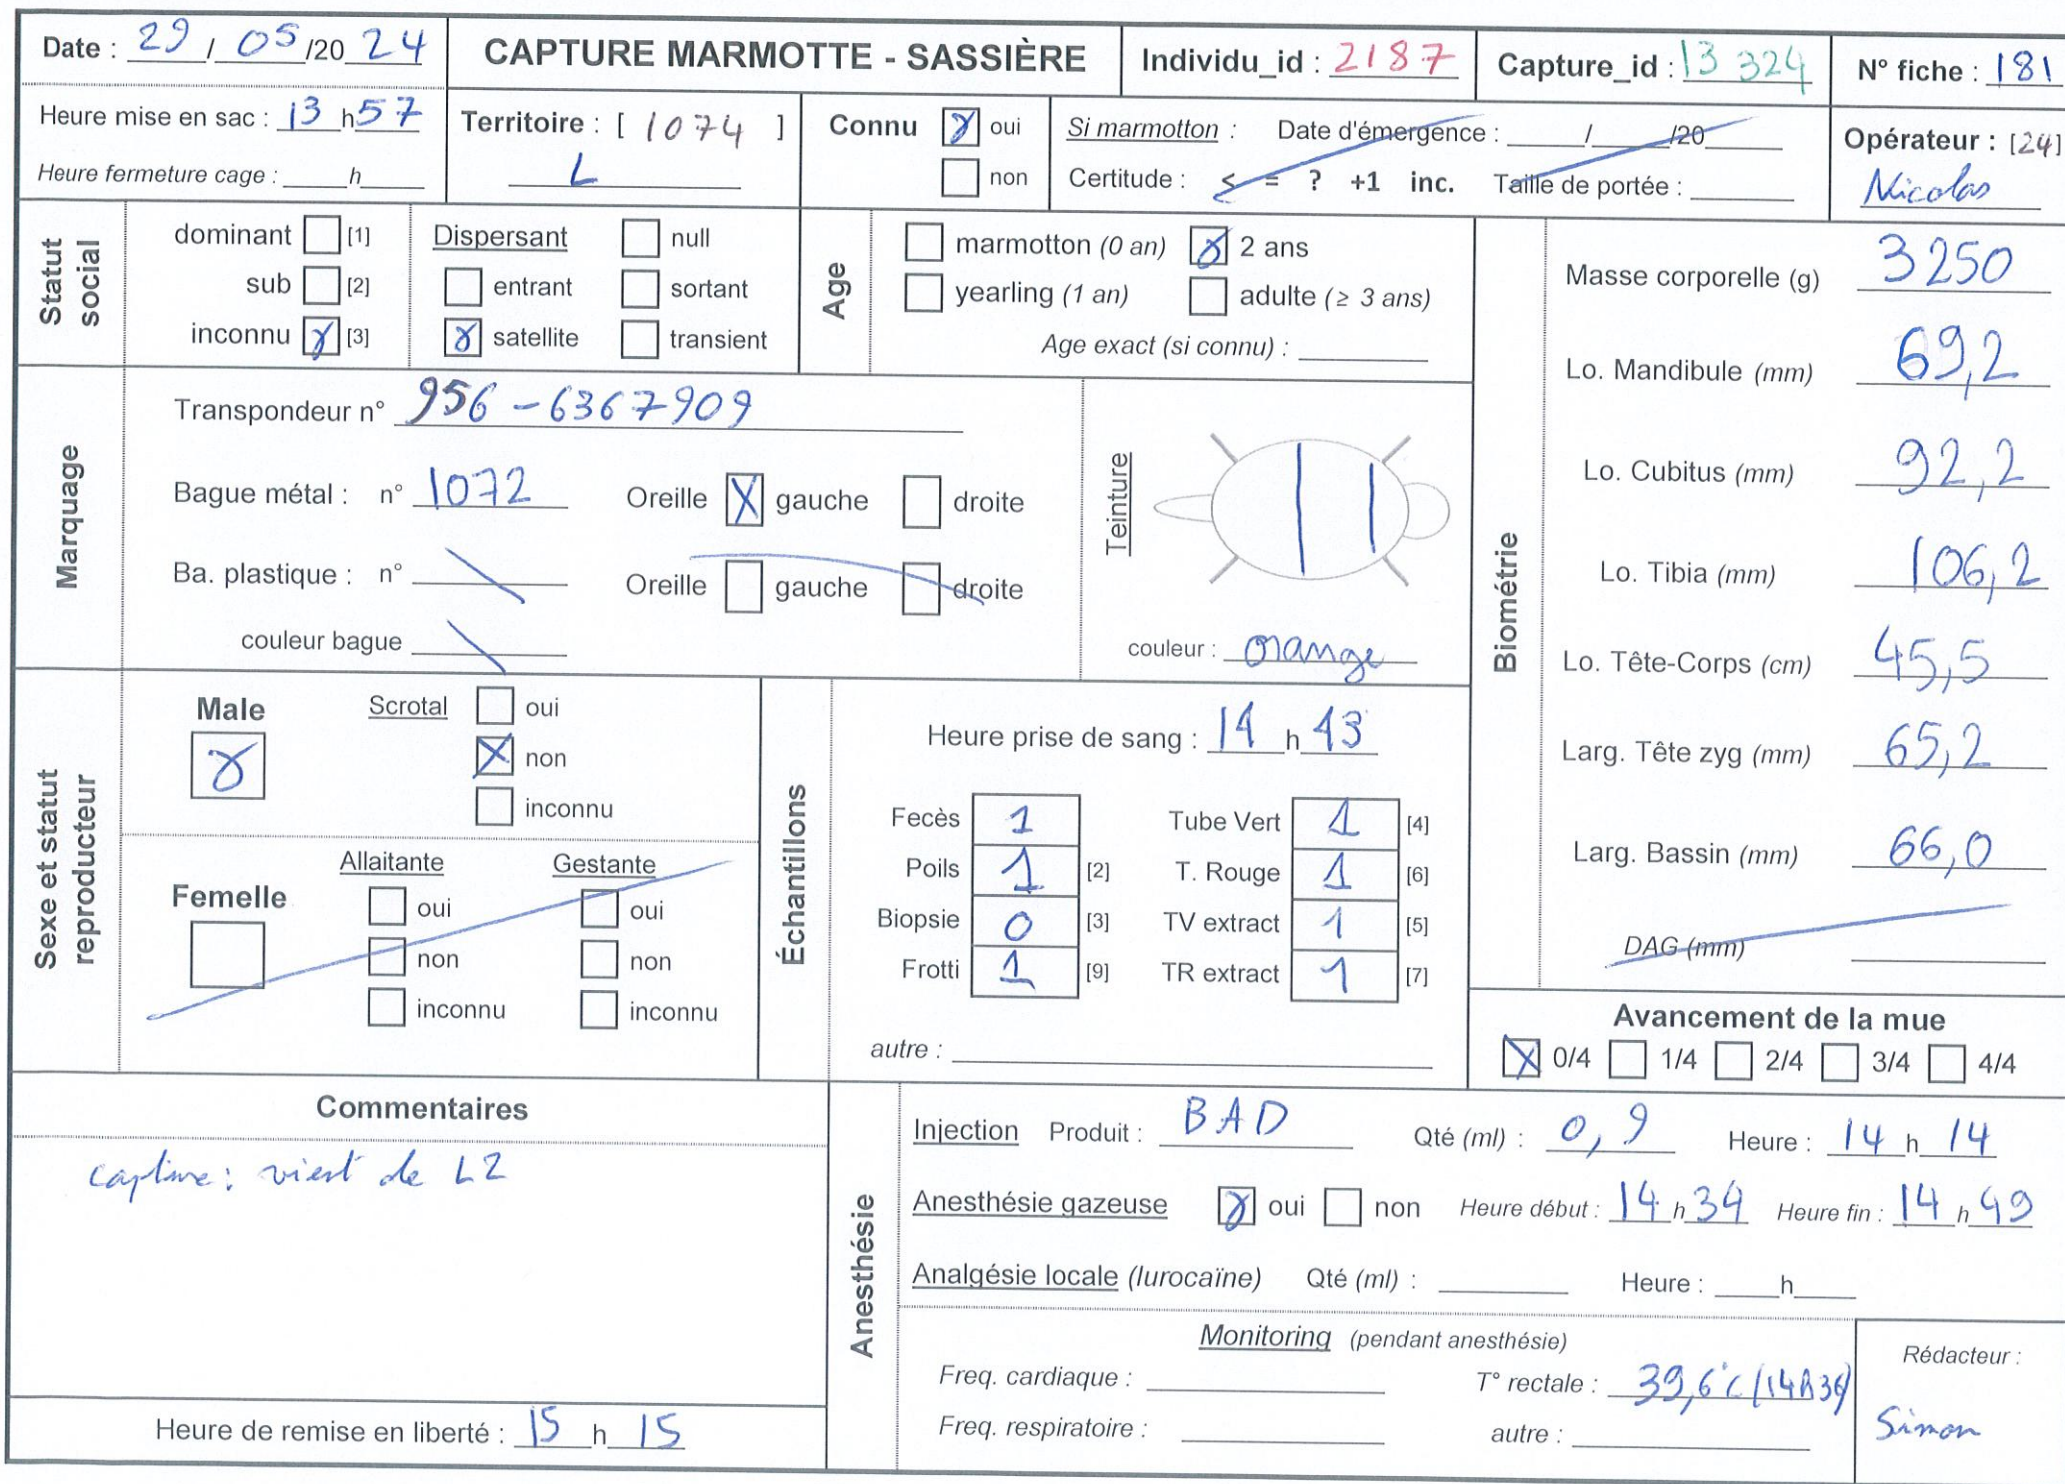 Date : 29 / 05 /20 24
CAPTURE MARMOTTE - SASSIÈRE
Individu_id : 2187
Capture_id : 13 324
N° fiche : 181
Heure mise en sac : 13 h 57
Heure fermeture cage : ____h____
Territoire : [ 1074 ]
L
Connu oui
non
Si marmotton : Date d'émergence : ____/____/20____
Certitude : ≤ = ? +1 inc. Taille de portée : ____
Opérateur : [24]
Nicolas
Statut social
dominant [1]
sub [2]
inconnu [3]
Dispersant null
entrant sortant
satellite transient
Age
marmotton (0 an) 2 ans
yearling (1 an) adulte (≥ 3 ans)
Age exact (si connu) : ____
Marquage
Transpondeur n° 956 - 6367909
Bague métal : n° 1072 Oreille gauche droite
Ba. plastique : n° Oreille gauche droite
couleur bague
Teinture
couleur : orange
Biométrie
Masse corporelle (g) 3250
Lo. Mandibule (mm) 69,2
Lo. Cubitus (mm) 92,2
Lo. Tibia (mm) 106,2
Lo. Tête-Corps (cm) 45,5
Larg. Tête zyg (mm) 65,2
Larg. Bassin (mm) 66,0
DAG (mm)
Sexe et statut reproducteur
Male
Scrotal oui
non
inconnu
Femelle
Allaitante Gestante
oui oui
non non
inconnu inconnu
Échantillons
Heure prise de sang : 14 h 43
Fecès 1 Tube Vert 1 [4]
Poils 1 [2] T. Rouge 1 [6]
Biopsie 0 [3] TV extract 1 [5]
Frotti 1 [9] TR extract 1 [7]
autre : ____
Avancement de la mue
0/4 1/4 2/4 3/4 4/4
Commentaires
capture : vient de L2
Heure de remise en liberté : 15 h 15
Anesthésie
Injection Produit : BAD Qté (ml) : 0,9 Heure : 14 h 14
Anesthésie gazeuse oui non Heure début : 14 h 34 Heure fin : 14 h 49
Analgésie locale (lurocaïne) Qté (ml) : ____ Heure : ____h____
Monitoring (pendant anesthésie)
Freq. cardiaque : ____ T° rectale : 39,6°C (14h36)
Freq. respiratoire : ____ autre : ____
Rédacteur :
Simon